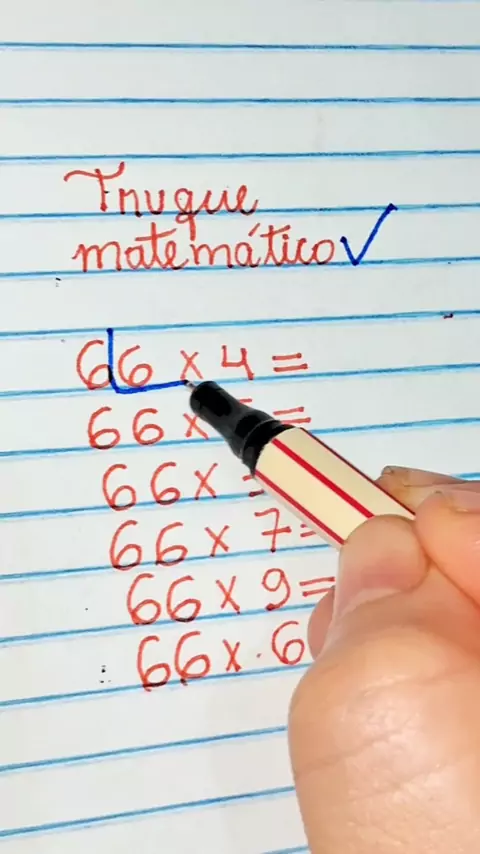 Truque
matemático✓
66 x 4 =
66 x =
66 x
66 x 7 =
66 x 9 =
66 x . 6